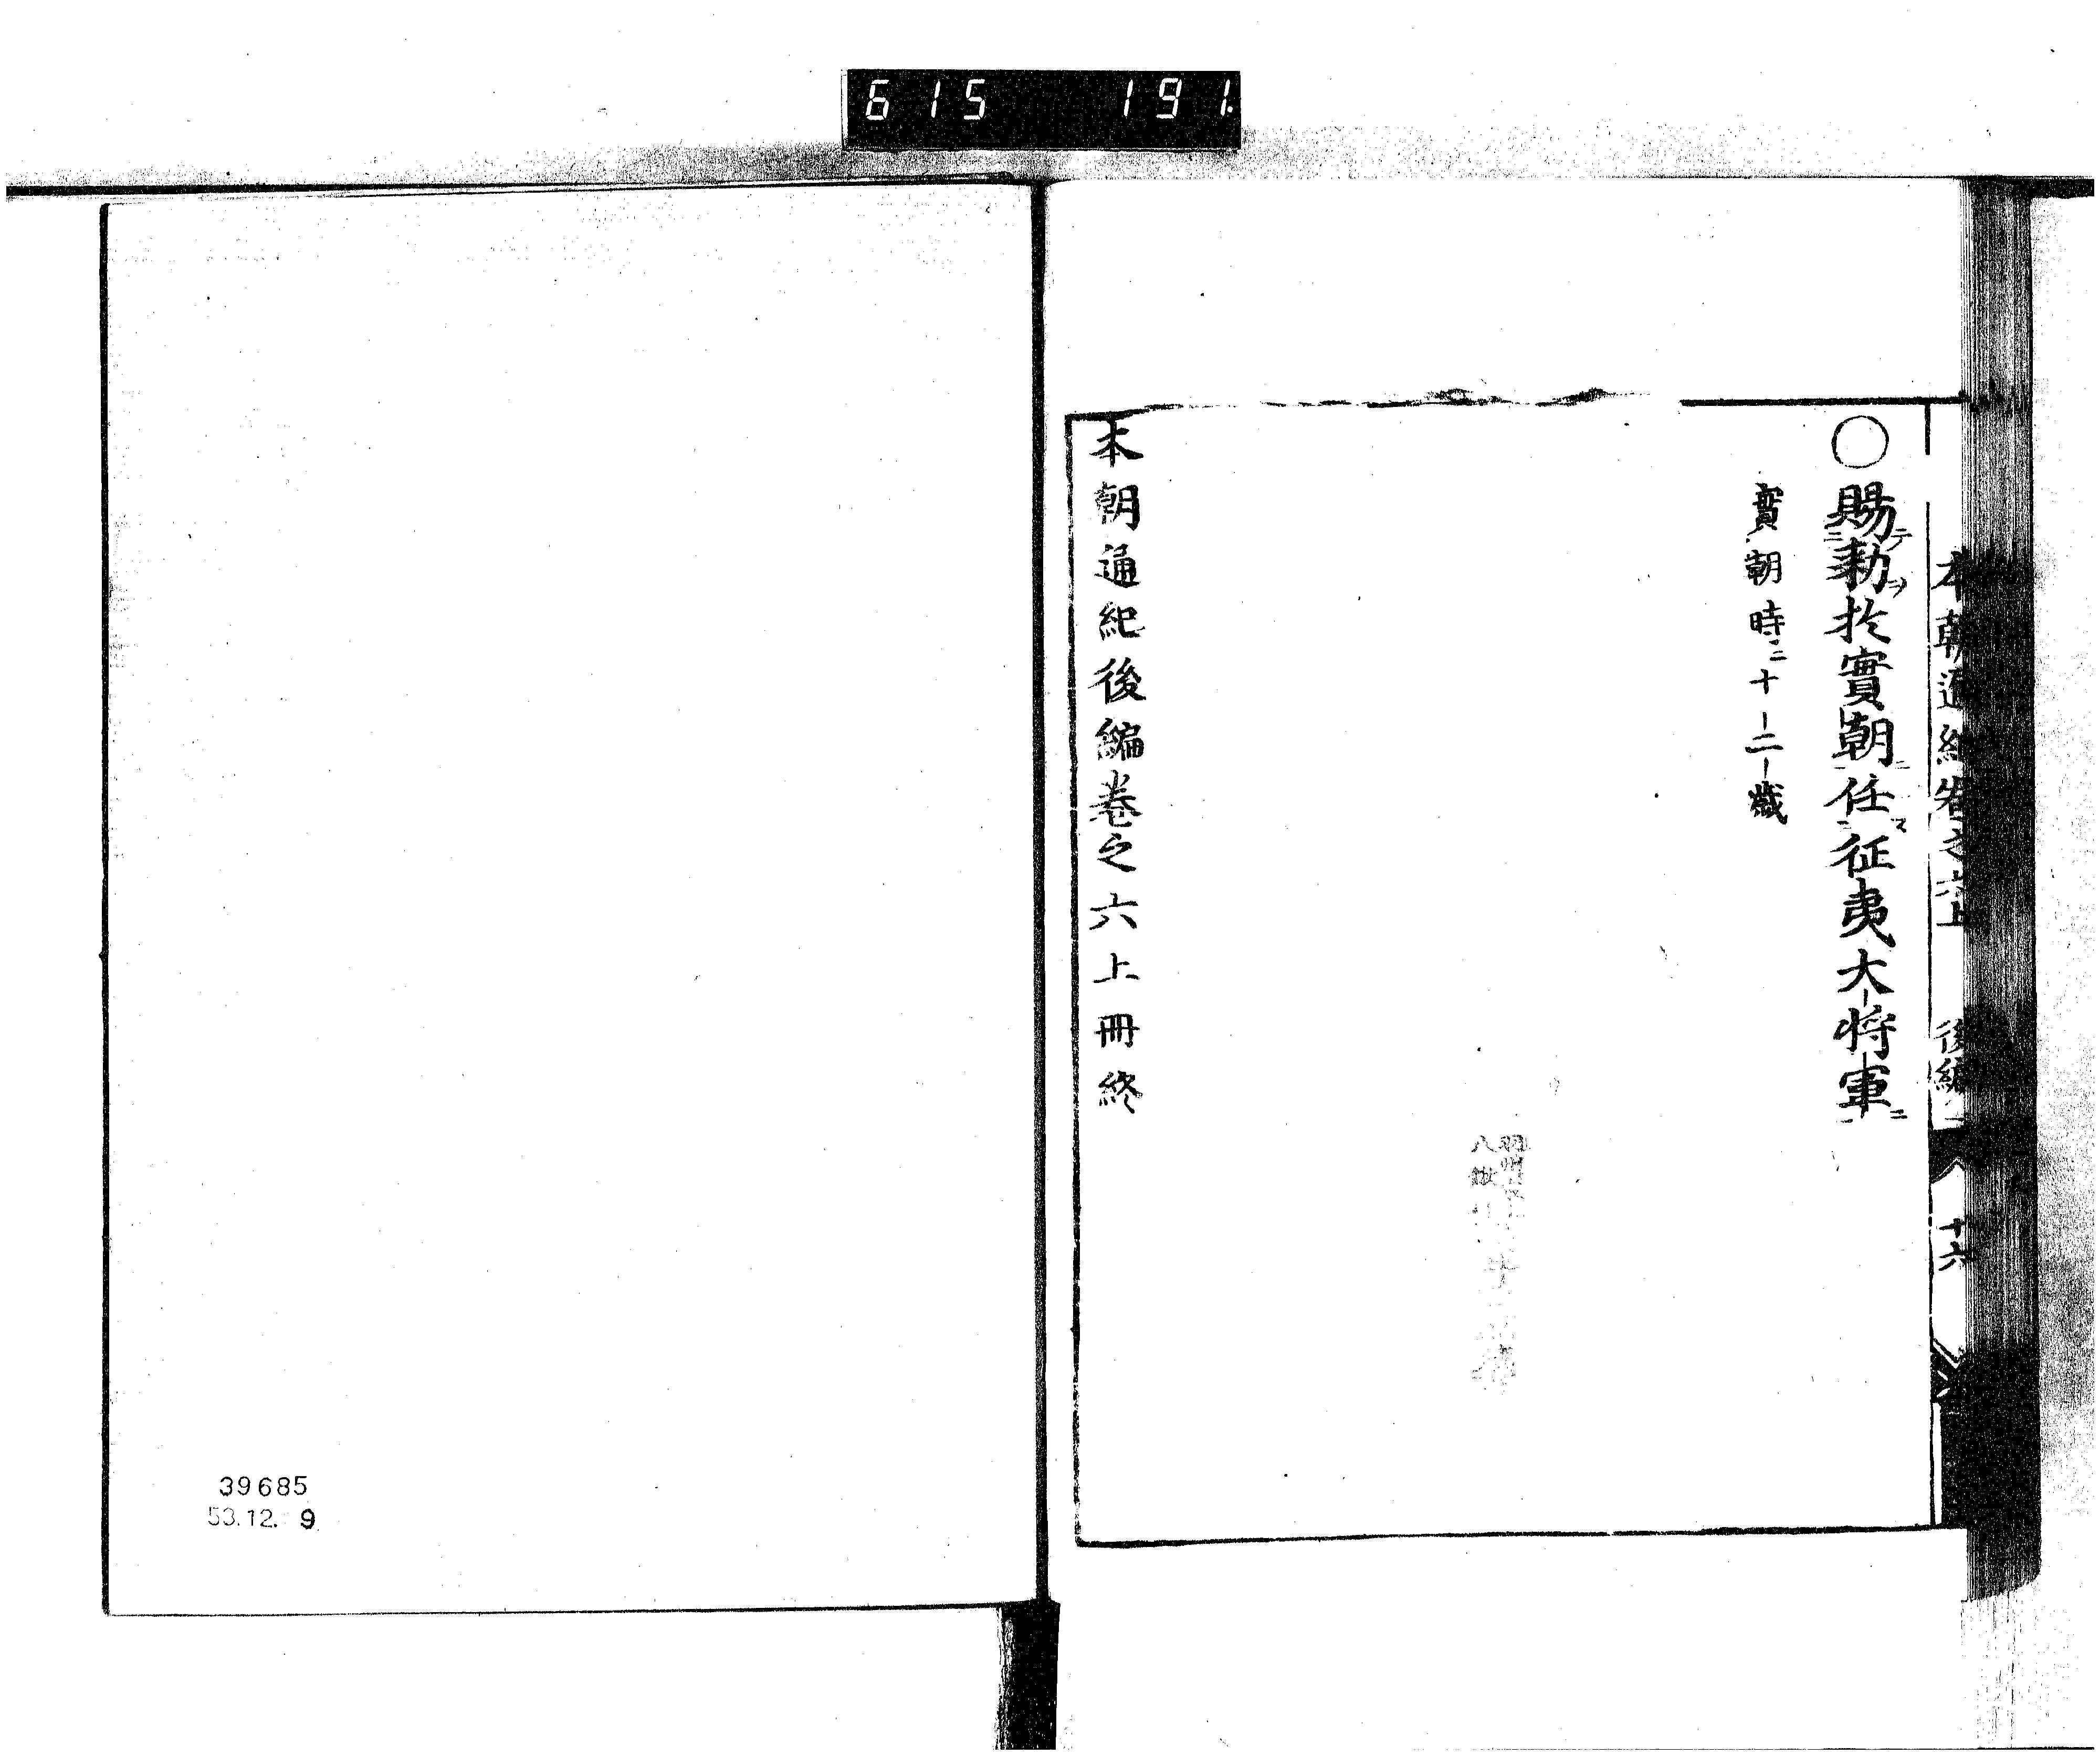 615 191
本朝通紀卷之六上 後編
十六
○賜勅於實朝任征夷大将軍
實朝時ニ十二歳
本朝通紀後編卷之六上冊終
39685
53.12. 9